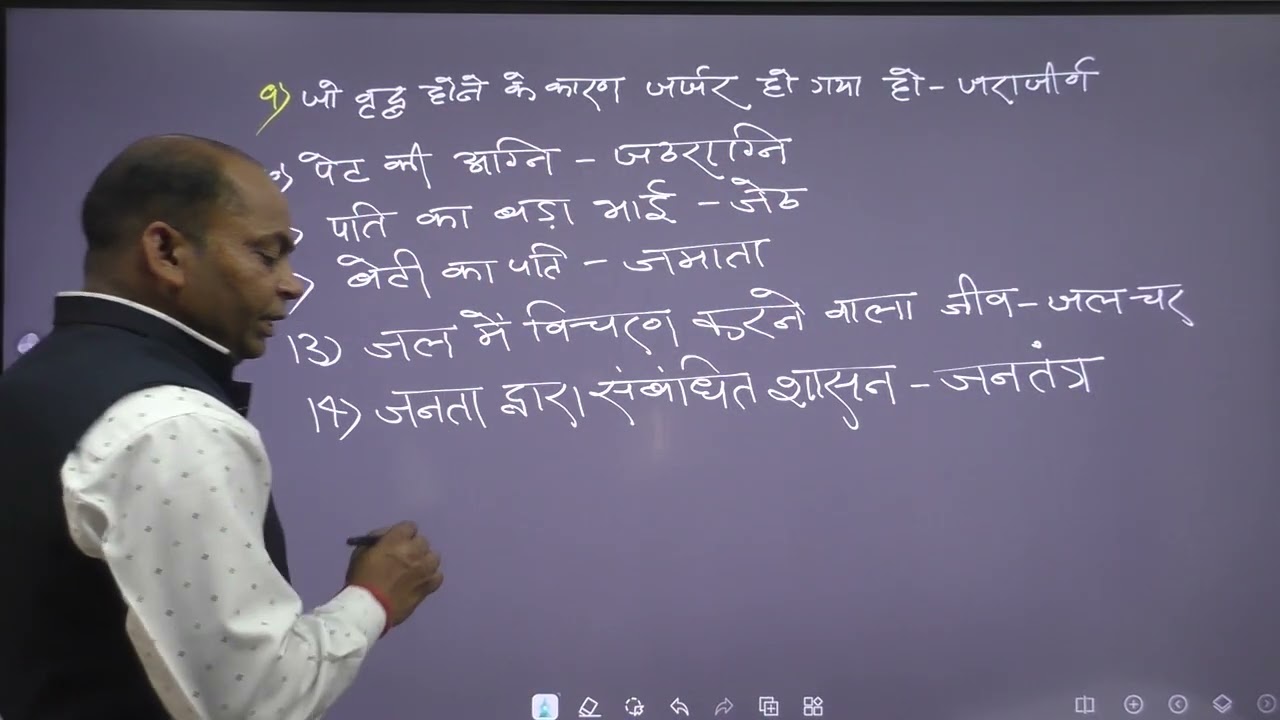 9) जो वृद्ध होने के कारण जर्जर हो गया हो - जराजीर्ण
) पेट की अग्नि - जठराग्नि
पति का बड़ा भाई - जेठ
) बेटी का पति - जमाता
13) जल में विचरण करने वाला जीव - जलचर
14) जनता द्वारा संबंधित शासन - जनतंत्र